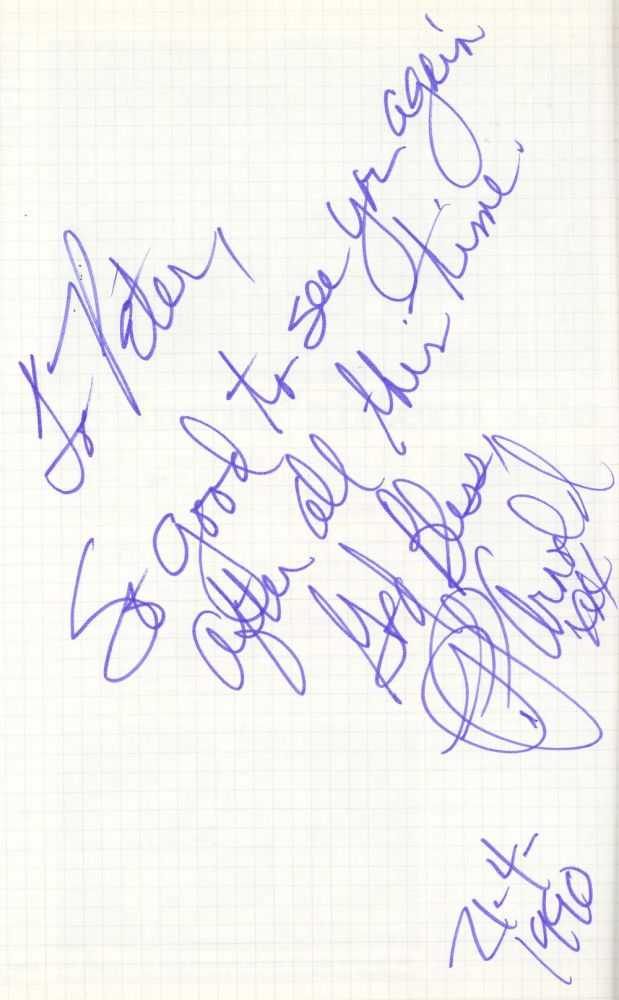 To Peter,
So good to see you again
after all this time.
God Bless,
P.P. Arnold
xxx
21-4-
1990